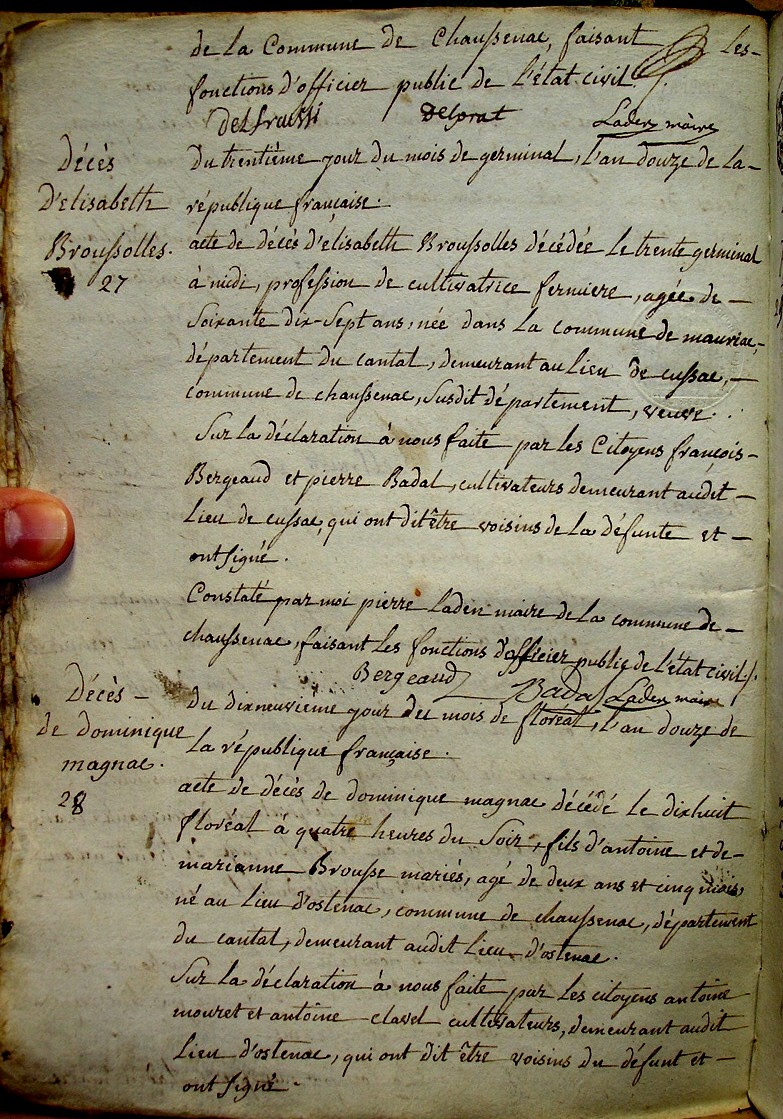 de la Commune de Chaussenac, faisant les-
fonctions d'officier public de l'état civil.
delfraissi Desprat Laden maire
Décès
D'elisabeth
Broussolles.
27
Du trentième jour du mois de germinal, l'an douze de la-
république française.
acte de décès d'elisabeth Broussolles décédée le trente germinal
à midi, profession de cultivatrice fermiere, agée de -
Soixante dix-Sept ans, née dans la commune de mauriac,-
département du cantal, demeurant au lieu de cussac, -
commune de chaussenac, Susdit département, veuve.
Sur la déclaration à nous faite par les Citoyens françois-
Bergeaud et pierre Badal, cultivateurs demeurant audit -
lieu de cussac, qui ont dit être voisins de la défunte et -
ont Signé.
Constaté par moi pierre Laden maire de la commune de -
chaussenac, faisant les fonctions d'officier public de l'état civil.
Bergeaud Badal Laden maire
Décès -
de dominique
magnac.
28
du dixneuvieme jour du mois de floréal, l'an douze de
la république française.
acte de décès de dominique magnac décédé le dixhuit
floréal à quatre heures du Soir, fils d'antoine et de -
marianne Brousse mariés, agé de deux ans et cinq mois,
né au lieu d'ostenac, commune de chaussenac, département
du cantal, demeurant audit lieu d'ostenac.
Sur la déclaration à nous faite par les citoyens antoine
mouret et antoine clavel cultivateurs, demeurant audit
lieu d'ostenac, qui ont dit être voisins du défunt et -
ont Signé.